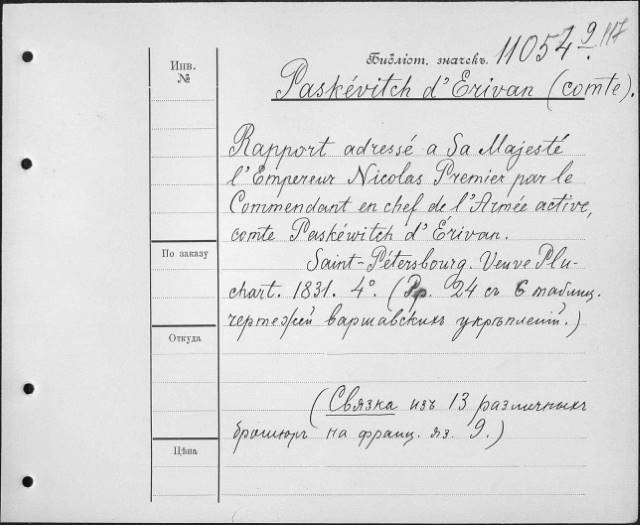 Библіот. значекъ. 11054 9. 117
Инв.
№
Paskévitch d'Erivan (comte).
Rapport adressé a Sa Majesté
l'Empereur Nicolas Premier par le
Commendant en chef de l'Armée active,
comte Paskéwitch d'Érivan.
По заказу
Saint-Pétersbourg. Veuve Plu-
chart. 1831. 4°. (Pp. 24 съ 6 таблиц.
чертежей варшавскихъ укрѣпленій.)
Откуда
(Связка изъ 13 различныхъ
брошюръ на франц. яз. 9.)
Цѣна